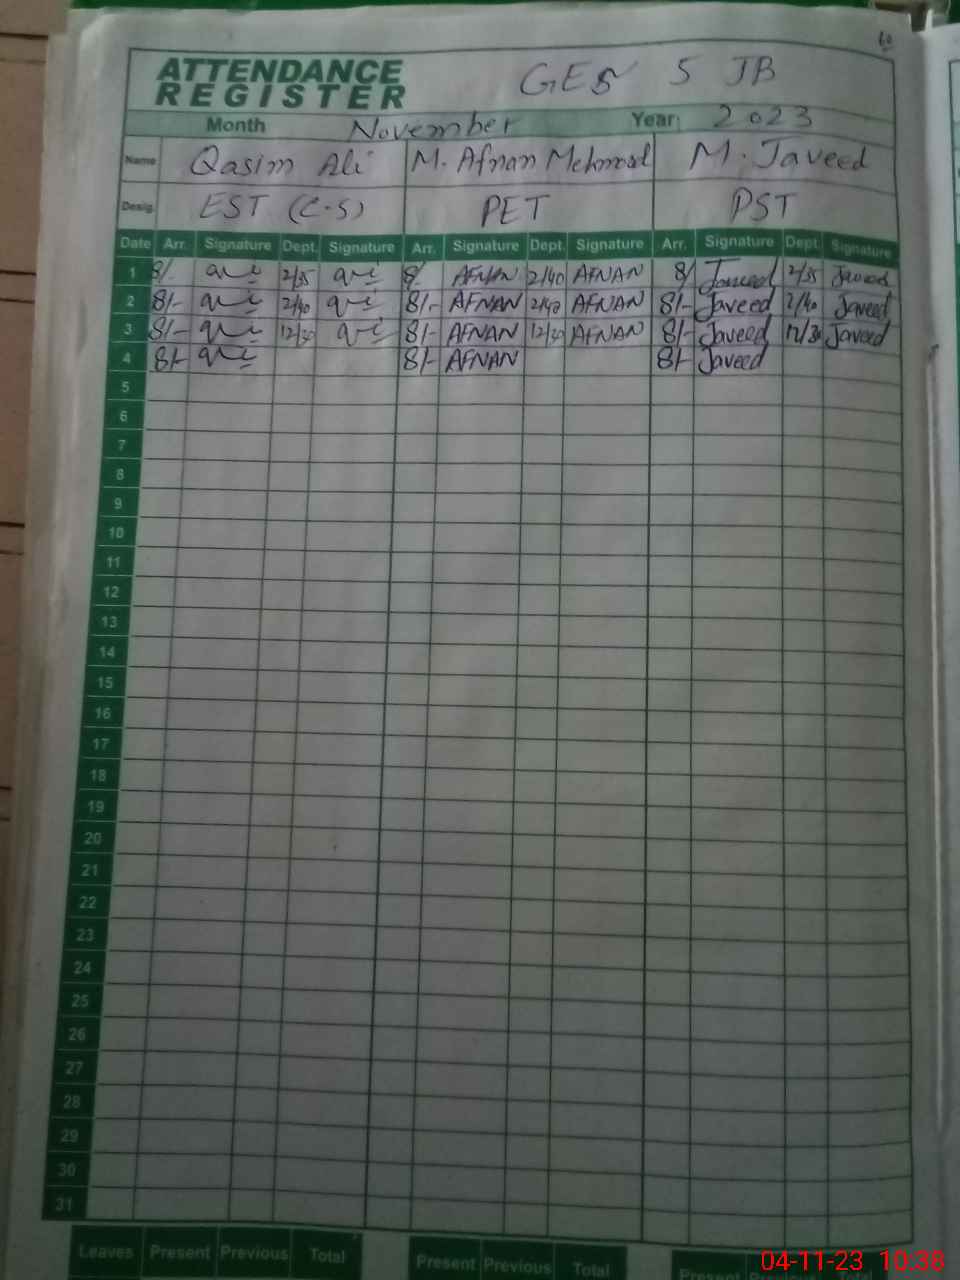 10
ATTENDANCE
REGISTER
GES 5 JB
Month November Year 2023
Name Qasim Ali M. Afnan Mehmood M. Javeed
Desig. EST (C-S) PET PST
Date Arr. Signature Dept. Signature Arr. Signature Dept. Signature Arr. Signature Dept. Signature
1 8/- 2/35 8/- AFNAN 2/40 AFNAN 8/ Javeed 2/35 Javeed
2 8/- 2/40 8/- AFNAN 2/40 AFNAN 8/- Javeed 2/40 Javeed
3 8/- 12/30 8/- AFNAN 12/30 AFNAN 8/- Javeed 12/30 Javeed
4 8/- 8/- AFNAN 8/- Javeed
5
6
7
8
9
10
11
12
13
14
15
16
17
18
19
20
21
22
23
24
25
26
27
28
29
30
31
Leaves Present Previous Total Present Previous Total Present
04-11-23 10:38